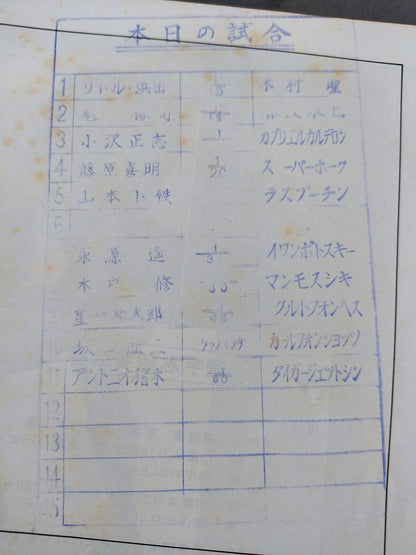 本日の試合
1 リトル・浜田 1/15 木村 聖
2 1/15
3 小沢正志 1 カブリエルカルデロン
4 藤原喜明 1/20 スーパーホーク
5 山本小鉄 ラスプーチン
6
永源 遥 1/31 イワンボトスキー
木戸 修 30 マンモスシキ
星 太郎 1/45 クルトフオンヘス
二 カールフオンショッツ
11 アントニオ猪木 1/60 タイガージエットシン
12
13
14
15